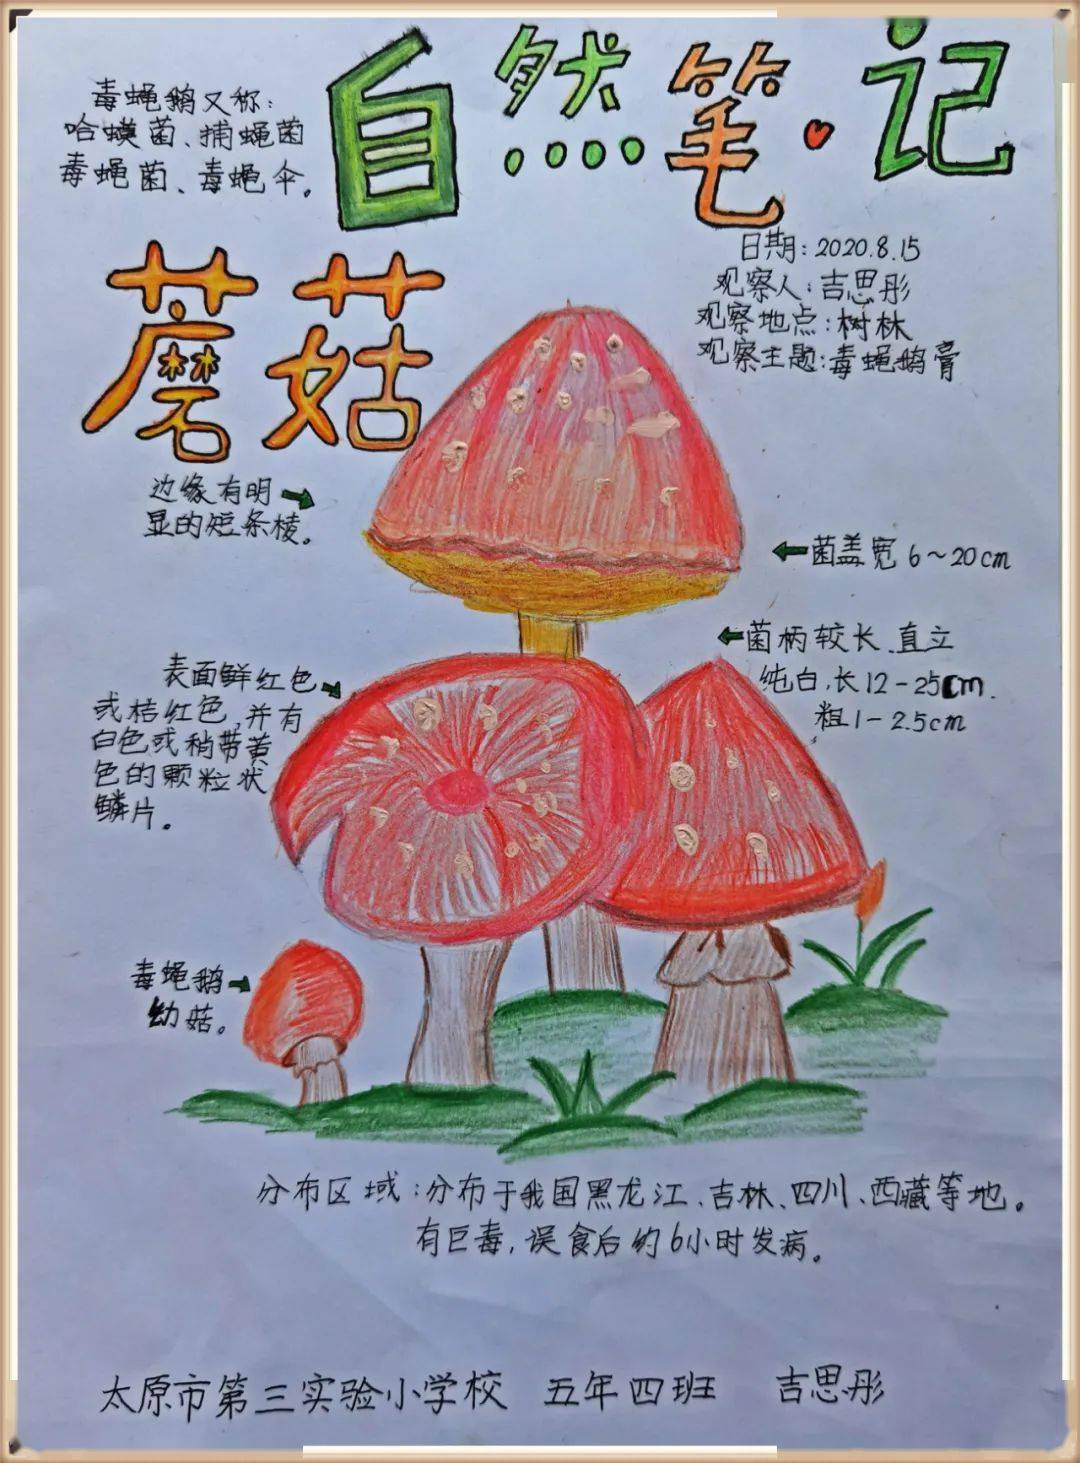 自然笔记
毒蝇鹅又称:
哈蟆菌、捕蝇菌
毒蝇菌、毒蝇伞。
蘑菇
日期:2020.8.15
观察人:吉思彤
观察地点:树林
观察主题:毒蝇鹅膏
边缘有明
显的短条棱。
菌盖宽 6~20cm
菌柄较长、直立
纯白,长12-25cm.
粗1-2.5cm
表面鲜红色
或桔红色,并有
白色或稍带黄
色的颗粒状
鳞片。
毒蝇鹅
幼菇。
分布区域:分布于我国黑龙江、吉林、四川、西藏等地。
有巨毒,误食后约6小时发病。
太原市第三实验小学校 五年四班 吉思彤